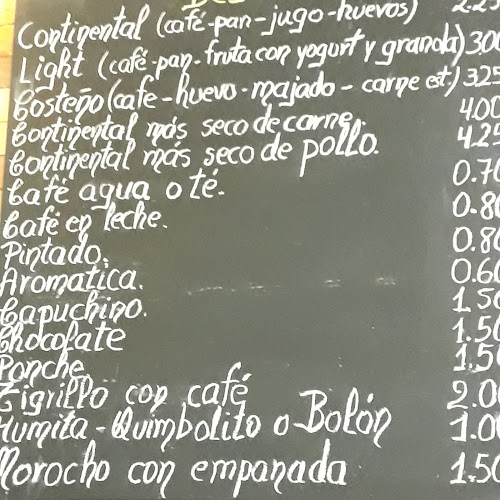 Continental (café-pan-jugo-huevos) 2.25
Light (café-pan-fruta con yogurt y granola) 300
Costeño (cafe-huevo-majado-carne est.) 325
Continental más seco de carne. 4.00
Continental más seco de pollo. 4.25
Café agua o té. 0.70
Café en leche. 0.80
Pintado. 0.80
Aromatica. 0.60
Capuchino. 1.50
Chocolate 1.50
Ponche 1.5
Tigrillo con café 2.00
Humita-Quimbolito o Bolón 1.00
Morocho con empanada 1.50